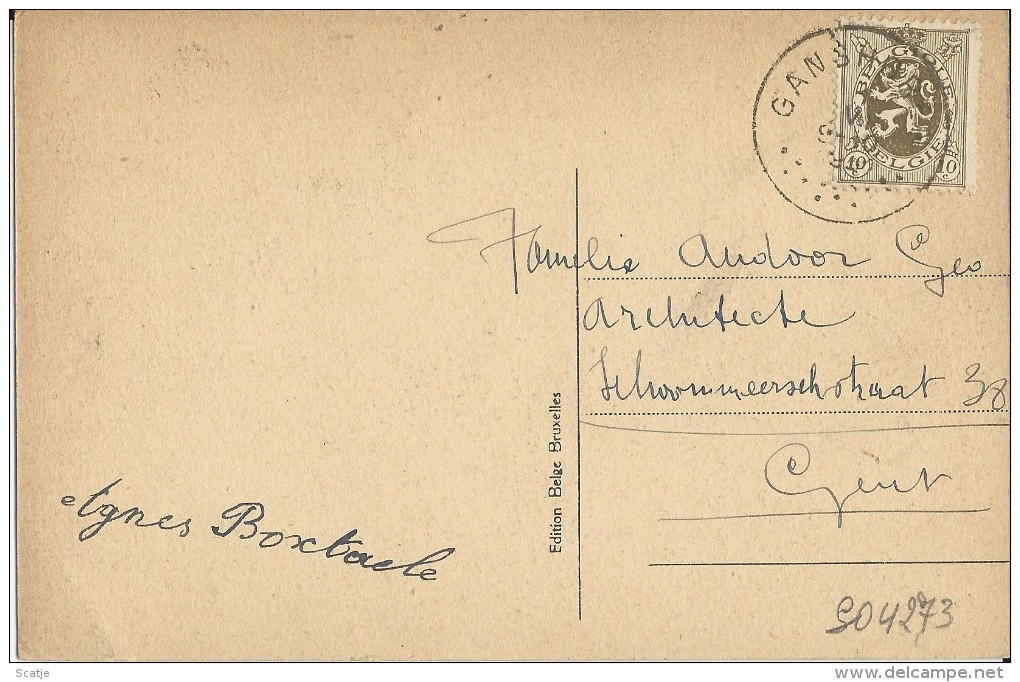 GANSH
BELGIQUE
BELGIE
10 c
10 c
Familie Andoor Geo
Architecte
Schoonmeerschstraat 38
Gent
Edition Belge Bruxelles
Agnes Boxtaele
S04273
Scatje
delcampe.net